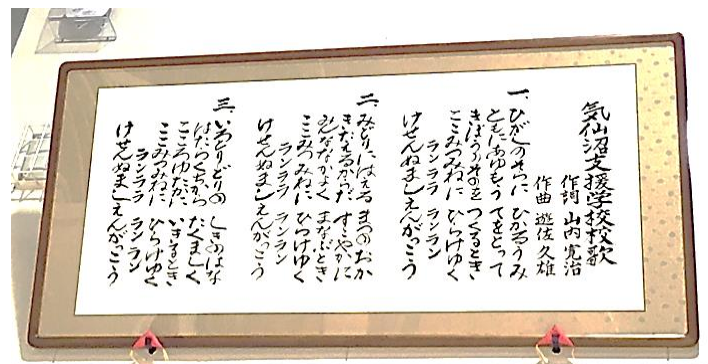 気仙沼支援学校校歌
作詞 山内 寛治
作曲 遊佐 久雄
一、ひがしのそらに ひかるうみ
ともにあゆもう てをとって
きぼうのそのを つくるとき
ここみつみねに ひらけゆく
ランララ ランラン
けせんぬましえんがっこう
二、みどりにはえる まつのおか
きたえるからだ すこやかに
みんななかよく まなぶとき
ここみつみねに ひらけゆく
ランララ ランラン
けせんぬましえんがっこう
三、いろとりどりの しきのはな
はたらくちから たくましく
こころゆたかに いきるとき
ここみつみねに ひらけゆく
ランララ ランラン
けせんぬましえんがっこう